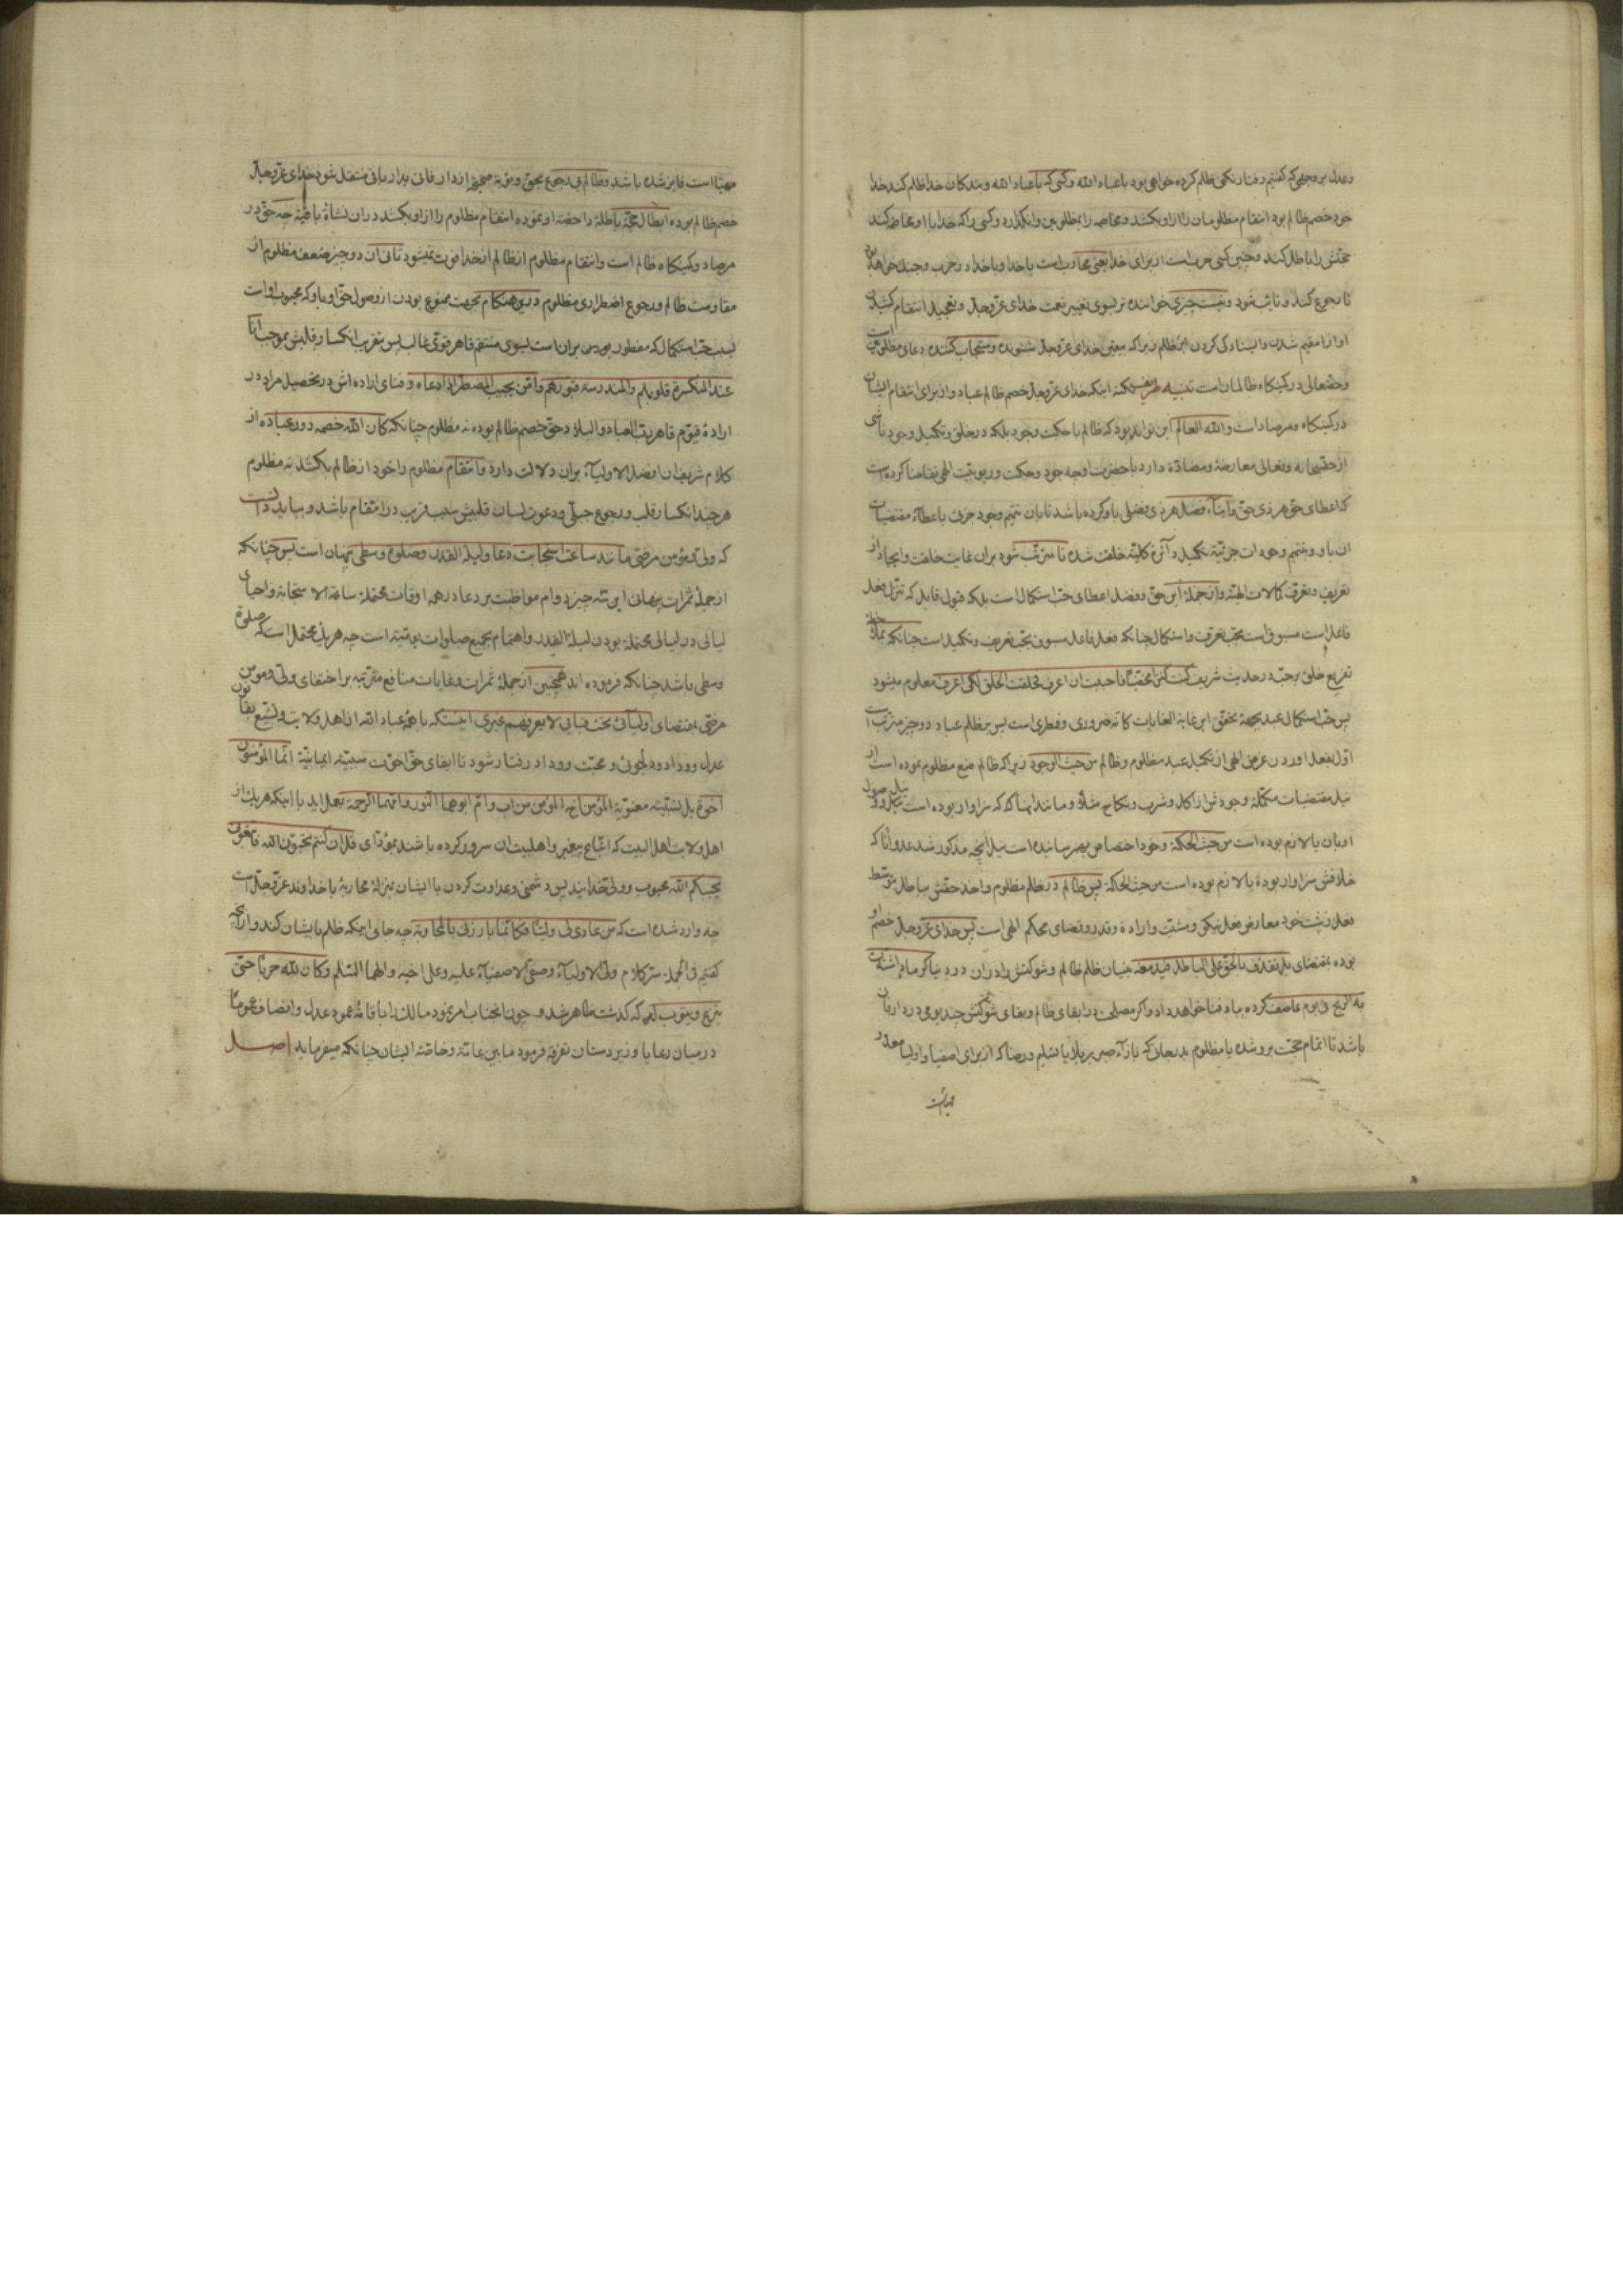 وعدل بر وجهی که گفتیم رفتار نکنی ظلم کرده خواهی بود با عباد الله وکسی که با عباد الله وبندکان خدا ظلم کند خدا
خود خصم ظالم بود انتقام مظلومان را از او بکشد ومخاصمه را بمظلومین وانکذارد وکسی را که خدا با او مخاصمه کند
حجتش را باطل کند وچنین کسی حرب است از برای خدا یعنی محارب است با خدا وبا خدا در حرب وجنک خواهد بود
تا رجوع کند وتایب شود ونیست چیزی خواننده تر بسوی تغییر نعمت خدای عز وجل وتعجیل انتقام کشیدن
او از مقیم شدن وایستادکی کردن بر ظلم زیرا که بیقین خدای عز وجل شنونده ومستجاب کننده دعای مظلومین است
وحقتعالی در کمینکاه ظالمان است تنبیه نکته اینکه خدای عز وجل خصم ظالم عباد واز برای انتقام ایشان
در کمینکاه ومرصاد است والله العالم این تواند بود که ظالم با حکمت وجود بلکه در خلق وتکمیل وجود ناشی
از حقسبحانه وتعالی معارضه ومضاده دارد با حضرت او چه جود وحکمت وربوبیت الهی تقاضا کرده است
که اعطای حق هر ذی حق وایتاء فضل هر ذی فضلی باو کرده باشد تا بان تتمیم وجود جزئی باعطاء مقتضیات
ان باو وبتتمیم وجودات جزئیه تکمیل دآئره کلیه خلقت شده تا مترتب شود بران غایت خلقت وایجاد از
تعریف وتعرف کمالات الهیه واز جمله این حق وفضل اعطای حب استکمال است بلکه قبول قابل که تنزل فعل
فاعل است مسبوق است بحب تعرف واستکمال چنانکه فعل فاعل مسبوق بحب تعریف وتکمیل است چنانکه
تفریع خلق بر حب در حدیث شریف کنت کنزا مخفیا فاحببت ان اعرف فخلقت الخلق لکی اعرف معلوم میشود
پس حب استکمال عبد بجهة تحقق این غایة الغایات کانه ضروری وفطری است پس بر ظلم عباد دو چیز مترتب است
اول بفعل اوردن عرض الهی از تکمیل عبد مظلوم وظالم من حیث الوجود زیرا که ظالم منع مظلوم نموده است از
نیل مقتضیات مکمله وجودش از اکل وشرب ونکاح مثلا ومانند اینها که که سزاوار بوده است نیل ووصول
او بان یا لازم بوده است من حیث الحکمة وخود اختصاص بهم رسانیده است بنیل انچه مذکور شد عدوانا که
خلافش سزاوار بوده یا لازم بوده است من حیث الحکمة پس ظالم در ظلم مظلوم واخذ حقش بباطل بتوسط
فعل زشت خود معارض فعل نیکی ومشیت واراده وقدر وقضای محکم الهی است پس خدای عز وجل خصم او
بوده بمقتضای بل نقذف بالحق علی الباطل فیدمغه بنیان ظلم ظالم وشوکتش را در ان در دنیا کرماد اشتدت
به الریح فی یوم عاصف کرده بباد فنا خواهد داد واکر مصلحتی در ابقای ظالم وبقای شوکتش چند یومی در دار فانی
باشد تا اتمام حجت برو شده یا مظلوم بدرجاتی که بازآء صبر بر بلا یا تسلیم ورضا که از برای اصفیا واولیا معد و
مهیا است
مهیا است فایز شده باشد وظالم بی رجوع بحق وتوبه صحیحه از دار فانی بدار باقی منتقل شود خدای عز وجل
خصم ظالم بوده ابطال حجة باطله داحضه او نموده انتقام مظلوم را از او بکشد در ان نشاة باقیه چه حق در
مرصاد وکمینکاه ظالم است وانتقام مظلوم از ظالم از خدا فوت نمیشود ثانی ان دو چیز ضعف مظلوم از
مقاومت ظالم ورجوع اضطراری مظلوم درین هنکام بجهت ممنوع بودن از وصول حق او باو که محبوب او است
بسبب حب استکمال که مفطور بودن بران است بسوی منتقم قاهر قوی غالب پس بتقریب انکسار قلبش بموجب انا
عند المنکسرة قلوبهم والمندرسة قبورهم وامن یجیب المضطر اذا دعاه وفنای اراده اش در تحصیل مراد در
اراده قیوم قاهر رب العباد والبلاد حق خصم ظالم بوده نه مظلوم چنانکه کان الله خصمه دون عباده از
کلام شریف ان افضل الاولیآء بران دلالت دارد وانتقام مظلوم را خود از ظالم بکشد نه مظلوم
هر چند انکسار قلب ورجوع جبلی ودعوت لسان قلبیش سبب قریب در انتقام باشد وبباید دانست
که ولی ومؤمن مرضی مانند ساعت استجابت دعا ولیلة القدر وصلوة وسطی پنهان است پس چنانکه
از جمله ثمرات پنهانی این سه چیز دوام مواظبت بر دعا در همه اوقات محتمله ساعة الاستجابة واحیای
لیالی در لیالی محتملة بودن لیلة القدر واهتمام بجمیع صلوات یومیه است چه هریک محتمل است که صلوة
وسطی باشد چنانکه فرموده اند همچنین از جمله ثمرات وغایات منافع مترتبه بر اختفای ولی ومومن
مرضی بمقتضای اولیآئی تحت قبابی لا یعرفهم غیری اینست که با همه عباد الله از اهل ولایت وتشیع بقانون
عدل ووداد ودلجوئی ومحبت ووداد رفتار شود تا ایفای حق اخوت سببیه ایمانیه انما المؤمنون
اخوة بل نسبتیه معنویه المؤمن اخ المؤمن من اب وام ابوهما النور وامهما الرحمة بعمل اید یا اینکه هریک از
اهل ولایت اهل البیت که اتباع پیغمبر واهلبیت ان سرور کرده باشند بمؤدای قل ان کنتم تحبون الله فاتبعونی
یحببکم الله محبوب وولی خدایند پس دشمنی وعداوت کردن با ایشان بمنزله محاربه با خداوند عز وجل است
چه وارد شده است که من عادی لی ولیا فکانما بارزنی بالمحاربة چه جای اینکه ظلم بایشان کند واز انچه
کفتیم فی الجمله سر کلام ولی الاولیآء وصفی الاصفیآء علیه وعلی اخیه والهما السلم وکان لله حربا حتی
ینزع ویتوب که گذشت ظاهر شد وچون انجناب امر بخود مالک را باقامه عمود عدل وانصاف عموما
در میان رعایا وزیردستان تفرقه فرمود مابین عامه وخاصه ایشان چنانکه میفرماید اصل